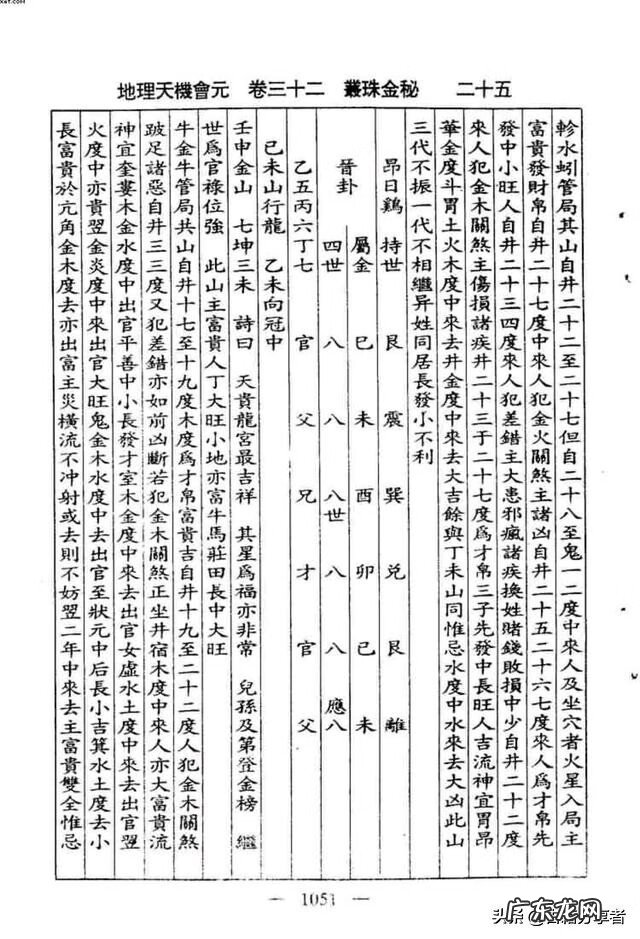 xet.com
地理天機會元　卷三十二　叢珠金秘　二十五
軫水蚓管局其山自井二十二至二十七但自二十八至鬼一二度中來人及坐穴者火星入局主
富貴發財帛自井二十七度中來人犯金火關煞主諸凶自井二十五二十六七度來人爲才帛先
發中小旺人自井二十三四度來人犯差錯主大患邪瘋諸疾換姓賭錢敗損中少自井二十二度
來人犯金木關煞主傷損諸疾井二十三于二十七度爲才帛三子先發中長旺人吉流神宜胃昴
華金度斗胃土火木度中來去井金度中來去大吉餘與丁未山同惟忌水度中水來去大凶此山
三代不振一代不相繼异姓同居長發小不利
昂日鷄　持世　艮　震　巽　兌　艮　離
屬金　巳　未　酉　卯　巳　未
晉卦　四世　八　八　八世　八　八　應八
乙五丙六丁七　官　父　兄　才　官　父
己未山行龍　乙未向冠中
壬申金山　七坤三未　詩曰　天貴龍宮最吉祥　其星爲福亦非常　兒孫及第登金榜　繼
世爲官祿位強　此山主富貴人丁大旺小地亦富牛馬莊田長中大旺
牛金牛管局共山自井十七至十九度木度爲才帛富貴吉自井十九至二十二度人犯金木關煞
跛足諸惡自井三三度又犯差錯亦如前凶斷若犯金木關煞正坐井宿木度中來人亦大富貴流
神宜奎婁木金水度中出官平善中小長發才室木金度中來去出官女虛水土度中來去出官翌
火度中亦貴翌金炎度中來出官大旺鬼金木水度中去出官至狀元中后長小吉箕水土度去小
長富貴於亢角金木度去亦出富主災橫流不冲射或去則不妨翌二年中來去主富貴雙全惟忌
— 1051 —
头条@古籍分享者
广东龙网